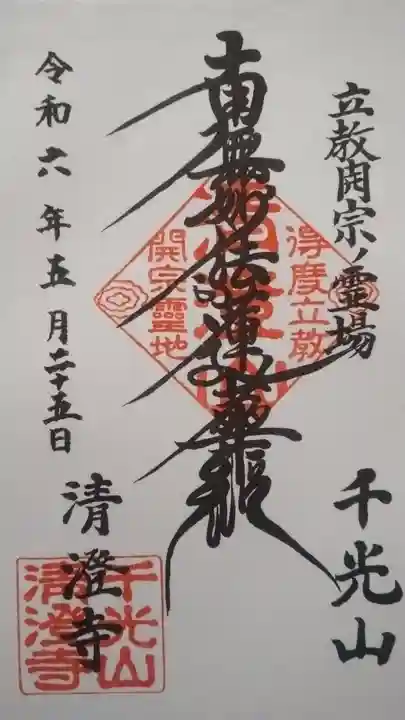 立教開宗ノ霊場
千光山
南無妙法蓮華経
得度立教
開宗靈地
令和六年五月二十五日
清澄寺
千光山
清澄寺